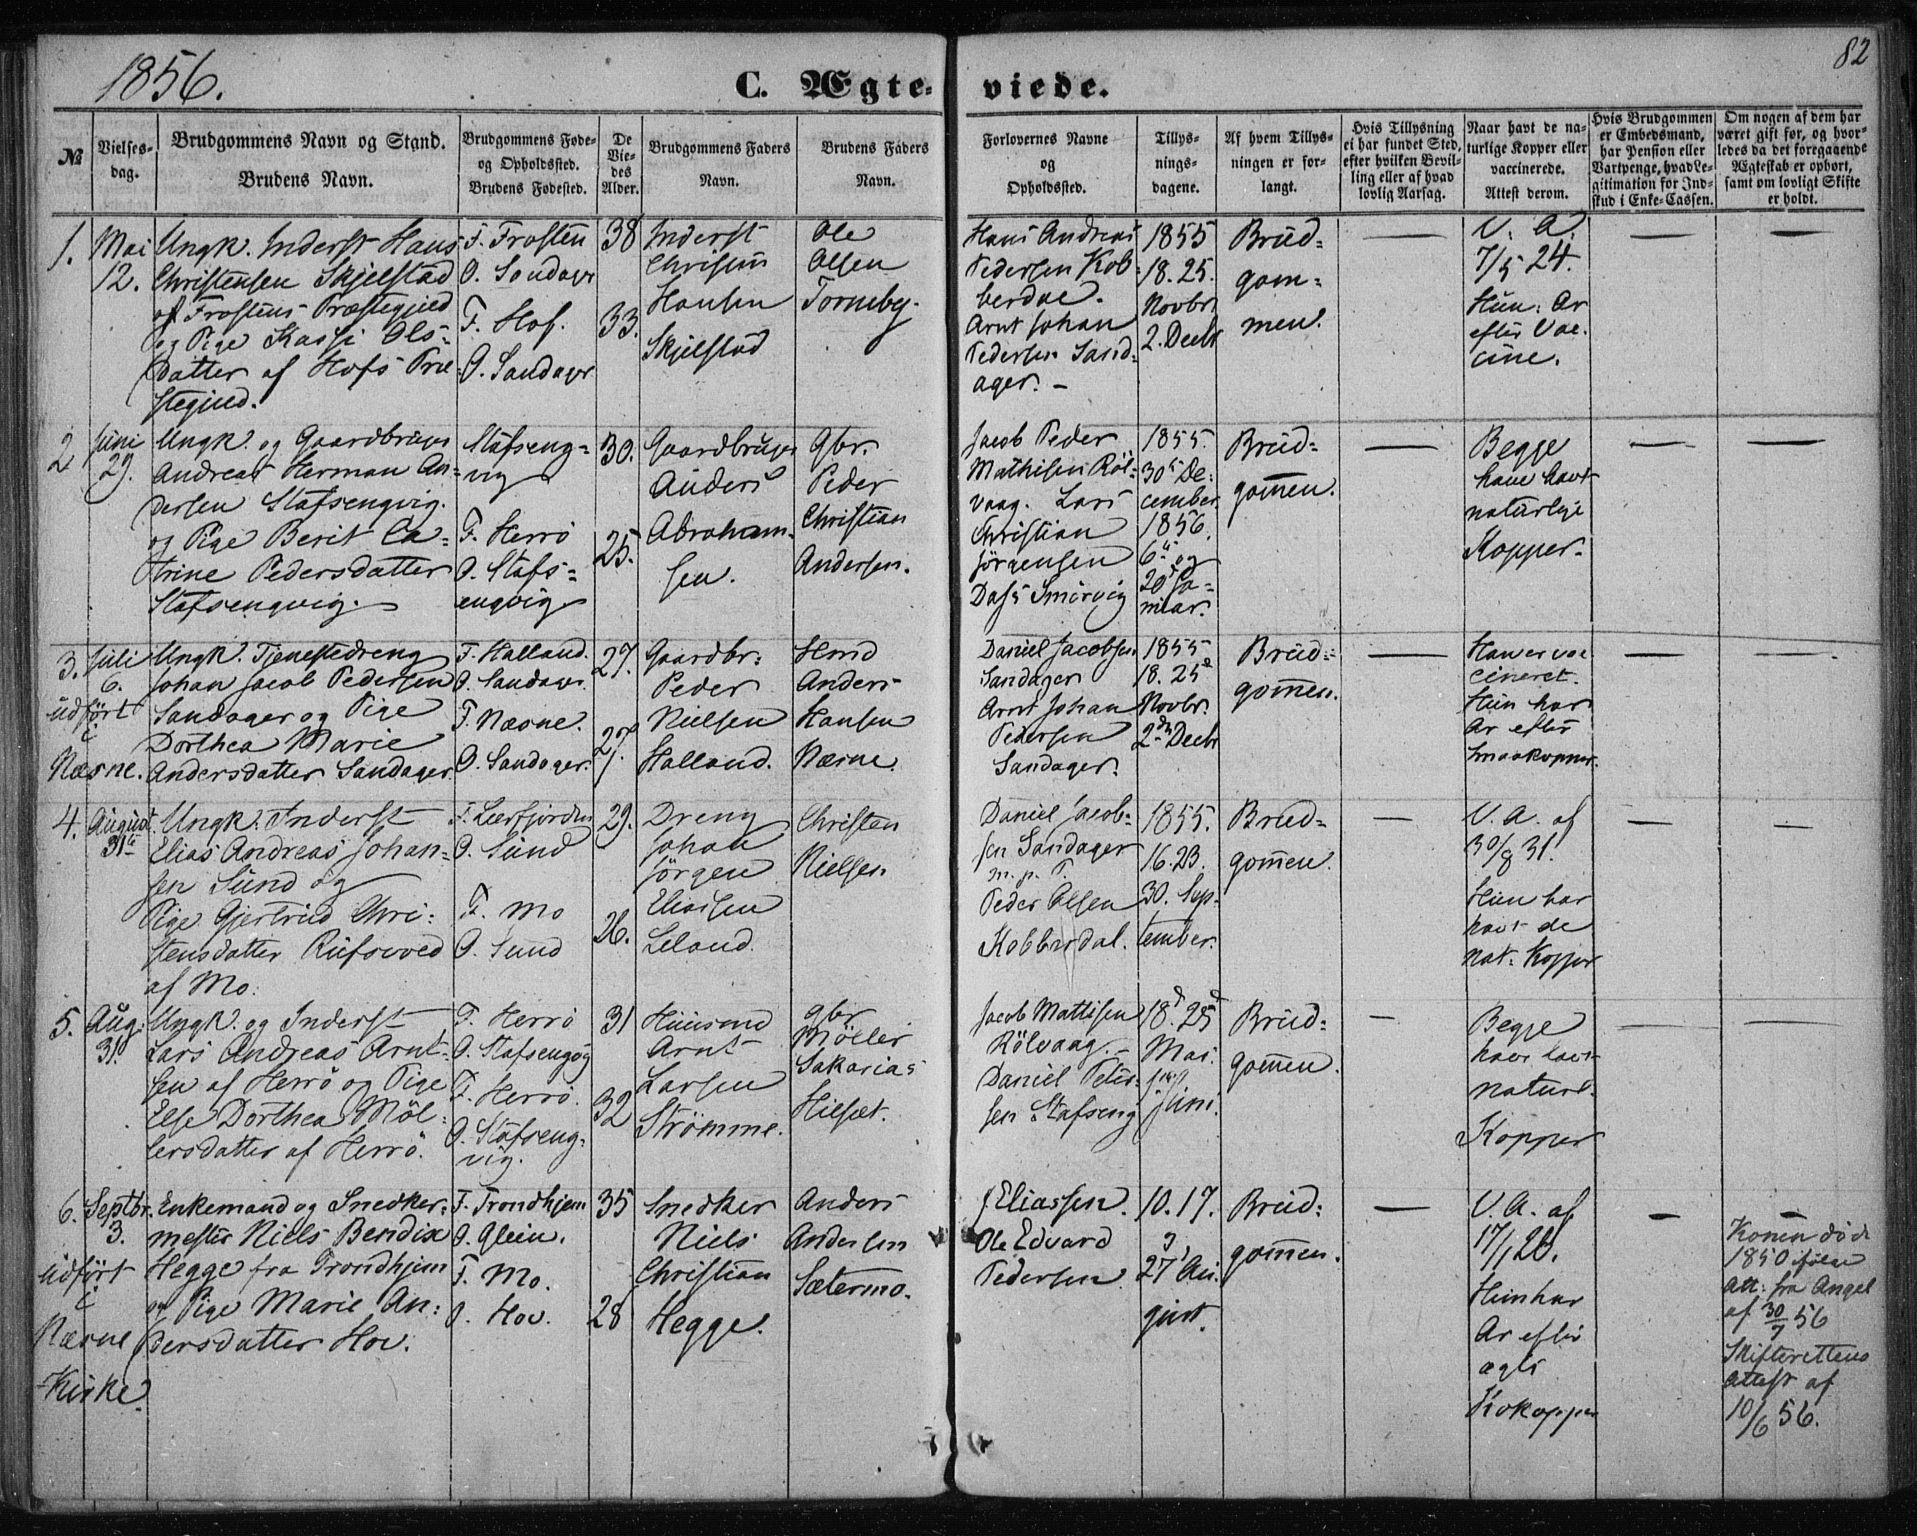 1856.
C. Ægte-
viede.
82
№
Vielses-
dag.
Brudgommens Navn og Stand.
Brudens Navn.
Brudgommens Føde-
og Opholdssted.
Brudens Fødested.
De
Vie-
des
Alder.
Brudgommens Faders
Navn.
Brudens Faders
Navn.
Forlovernes Navne
og
Opholdssted.
Tillys-
nings-
dagene.
Af hvem Tillys-
ningen er for-
langt.
Hvis Tillysning
ei har fundet Sted,
efter hvilken Bevil-
ling eller af hvad
lovlig Aarsag.
Naar havt de na-
turlige Kopper eller
vaccinerede.
Attest derom.
Hvis Brudgommen
er Embedsmand,
har Pension eller
Vartpenge, hvad Le-
gitimation for Ind-
skud i Enke-Cassen.
Om nogen af dem har
været gift før, og hvor-
ledes da det foregaaende
Ægteskab er ophørt,
samt om lovligt Skifte
er holdt.
1.
Mai
12.
Ungk. Inderst Hans
Christensen Skjelstad
af Frostens Præstegjeld
og Pige Kassi Ols-
datter af Hofs Præ-
stegjeld.
F. Frosten
O. Sandager
F. Hof.
O. Sandager
38
33.
Inderst
Christen
Hansen
Skjelstad
Ole
Olsen
Tornsbye.
Hans Andreas
Pedersen Kob-
berdal.
Arnt Johan
Pedersen Sand-
ager. -
1855
18. 25.
Novbr.
2. Decbr
Brud-
gom-
men.
—
V. A.
7/5 24.
Hun: Ar
efter Vac-
cine.
—
—
2
Juni
29.
Ungk. og Gaardbruger
Andreas Herman An-
dersen Stafsengvig.
og Pige Berit Ca-
trine Pedersdatter
Stafsengvig.
Stafseng-
vig
F. Herrö
O. Stafs-
engvig
30.
25.
Gaardbruger
Anders
Abraham-
sen.
Gbr.
Peder
Christian
Andersen.
Jacob Peder
Mathisen Röl-
vaag. Lars
Christian
Jörgensen
Dass Smörvig
1855.
30t De-
cember
1856.
6te og
20de Ja-
nuar.
Brud-
gommen.
—
Begge
have havt
naturlige
Kopper.
—
—
3.
Juli
6.
udført
i
Næsne.
Ungk. Tjenestedreng
Johan Jacob Pedersen
Sandager og Pige
Dorthea Marie
Andersdatter Sandager
F. Halland.
O. Sandager.
F. Næsne.
O. Sandager.
27.
27.
Gaardbr.
Peder
Nielsen
Halland.
Hmd
Anders
Hansen
Næsne.
Daniel Jacobsen
Sandager
Arnt Johan
Pedersen
Sandager.
1855
18. 25d
Novbr.
2den Decbr
Brud-
gommen.
—
Han er vac
cineret.
Hun har
Ar efter
Smaakopper.
—
—
4.
August
31te
Ungk. Inderst
Elias Andreas Johan-
sen Sund og
Pige Gjertrud Chri-
stensdatter Rufsvved
af Mo.
F. Leerfjorden
O. Sund
F. Mo
O. Sund
29.
26.
Dreng
Johan
Jörgen
Eliassen
Leland.
Christen
Nielsen
Daniel Jacob-
sen Sandager
m. p. P.
Peder Olsen
Kobberdal.
1855.
16. 23.
30. Sep-
tember.
Brud-
gommen.
—
V. A. af
30/8 31.
Hun har
havt de
nat. Kopper
—
—
5.
Aug.
31.
Ungk. og Inderst
Lars Andreas Arnt-
sen af Herrö og Pige
Else Dorthea Möl-
lersdatter af Herrö.
F. Herrö
O. Stafsengvig
F. Herrö.
O. Stafseng-
vig.
31
32
Huusmd
Arnt
Larsen
Strömme.
Gbr
Möller
Sakarias
Hilsæt.
Jacob Mattisen
Rölvaag. -
Daniel Peter-
sen Stafseng
18d 25d
Mai.
Juni.
Brud-
gommen.
—
Begge
have havt
naturl.
Kopper
—
—
6.
Septbr.
3.
Udført
i
Næsne
Kirke.
Enkemand og Snedker-
mester Niels Bendix
Hegge fra Trondhjem
og Pige Marie An-
dersdatter Hov.
F. Trondhjem
O. Glein.
F. Mo.
O. Hov.
35
28
Snedker
Niels
Christian
Hegge.
Anders
Andersen
Sætermo.
J Eliassen.
Ole Edvard
Pedersen
10. 17.
27 Au-
gust.
Brud-
gommen.
—
V. A. af
17/1 26.
Hun har
Ar efter
ægte
Kokopper
—
—
Konen död
1850 ifölge
Att. fra Angel
af 30/7 56
Skifterettens
attest af
10/6 56.